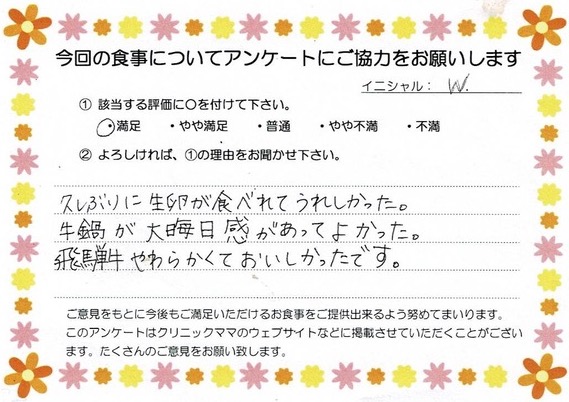 今回の食事についてアンケートにご協力をお願いします
イニシャル： W.
① 該当する評価に〇を付けて下さい。
・満足 ・やや満足 ・普通 ・やや不満 ・不満
② よろしければ、①の理由をお聞かせ下さい。
久しぶりに生卵が食べれてうれしかった。
牛鍋が大晦日感があってよかった。
飛騨牛やわらかくておいしかったです。
ご意見をもとに今後もご満足いただけるお食事をご提供出来るよう努めてまいります。
このアンケートはクリニックママのウェブサイトなどに掲載させていただくことがござい
ます。たくさんのご意見をお願い致します。